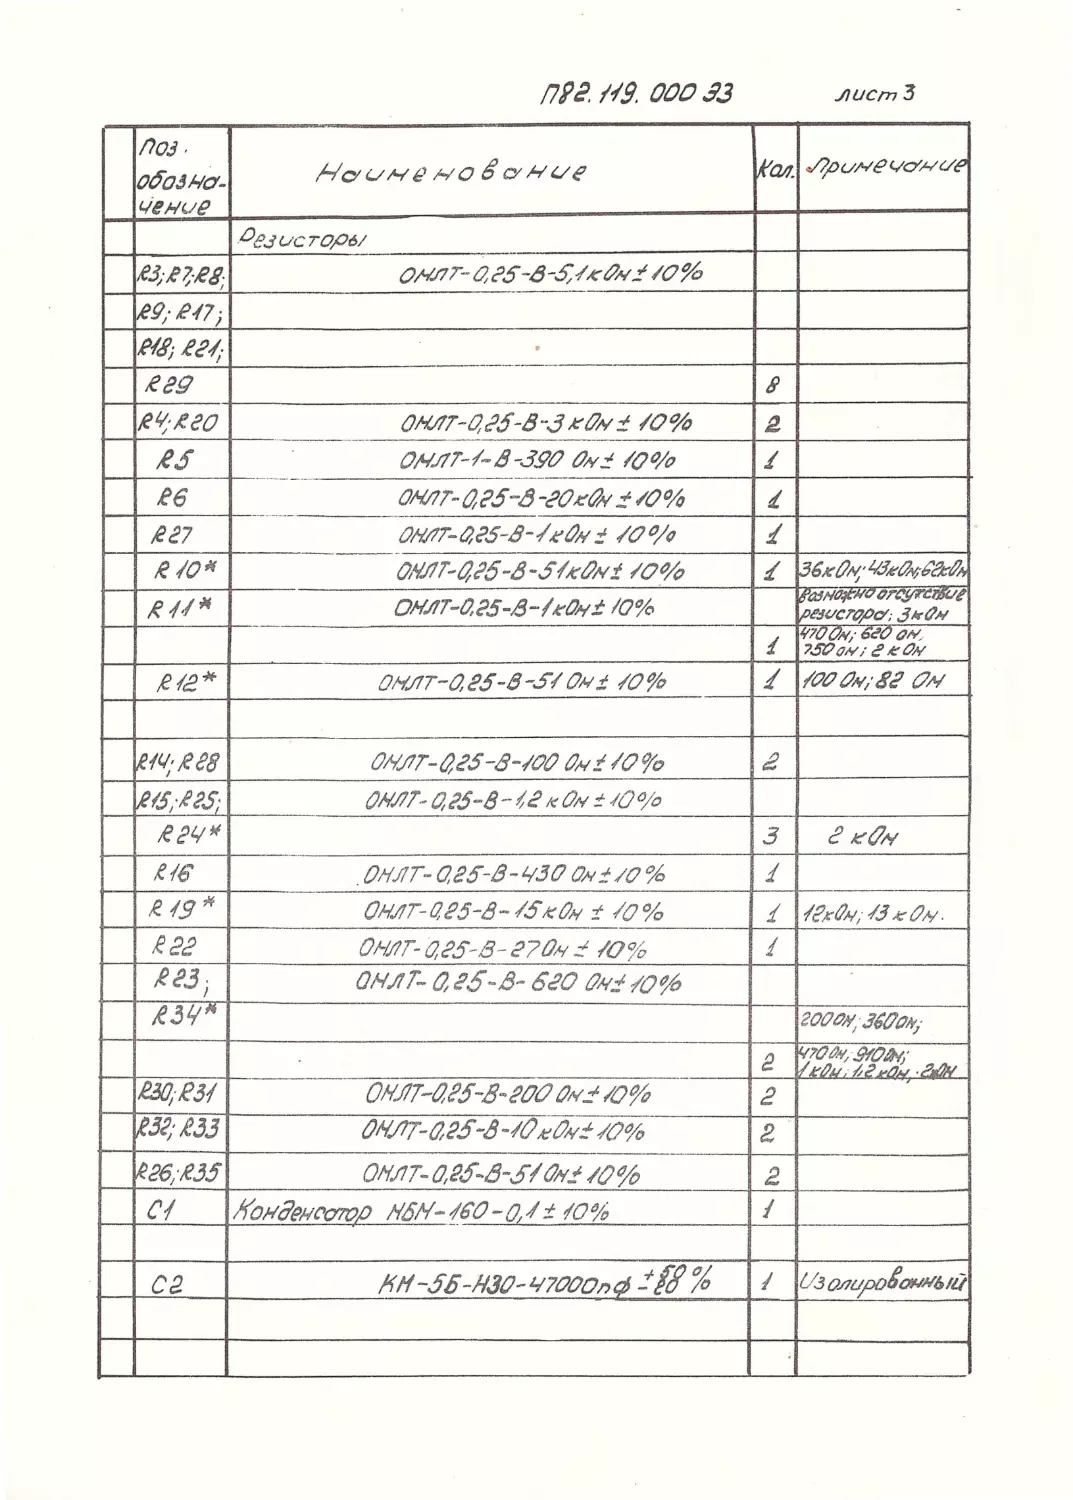 П82.119.000 ЭЗ лист 3
Поз. обозна- чение Наименование Кол. Примечание
Резисторы
R3; R7; R8; ОМЛТ-0,25-В-5,1кОм±10%
R9; R17;
R18; R21;
R29 8
R4; R20 ОМЛТ-0,25-В-3 кОм ± 10% 2
R5 ОМЛТ-1-В-390 Ом ± 10% 1
R6 ОМЛТ-0,25-В-20кОм ± 10% 1
R27 ОМЛТ-0,25-В-1кОм ± 10% 1
R10* ОМЛТ-0,25-В-51кОм ± 10% 1 36кОм; 43кОм; 62кОм
R11* ОМЛТ-0,25-В-1кОм ± 10% возможно отсутствие
резистора; 3кОм
1 470 Ом; 620 ом.
750 ом; 2 кОм
R12* ОМЛТ-0,25-В-51 Ом ± 10% 1 100 Ом; 82 Ом
R14; R28 ОМЛТ-0,25-В-100 Ом ± 10% 2
R15; R25; ОМЛТ-0,25-В-1,2 кОм ± 10%
R24* 3 2 кОм
R16 ОМЛТ-0,25-В-430 Ом ± 10% 1
R19* ОМЛТ-0,25-В-15кОм ± 10% 1 12кОм; 13 кОм.
R22 ОМЛТ-0,25-В-27Ом ± 10% 1
R23; ОМЛТ-0,25-В-620 Ом ± 10%
R34* 200 Ом; 360 Ом;
2 470 Ом; 910 Ом;
1 кОм; 1,2 кОм; 2кОм
R30; R31 ОМЛТ-0,25-В-200 Ом ± 10% 2
R32; R33 ОМЛТ-0,25-В-10 кОм ± 10% 2
R26; R35 ОМЛТ-0,25-В-51 Ом ± 10% 2
С1 Конденсатор МБМ-160-0,1 ± 10% 1
С2 КМ-5Б-Н30-47000пф +50 -20 % 1 Изолированный